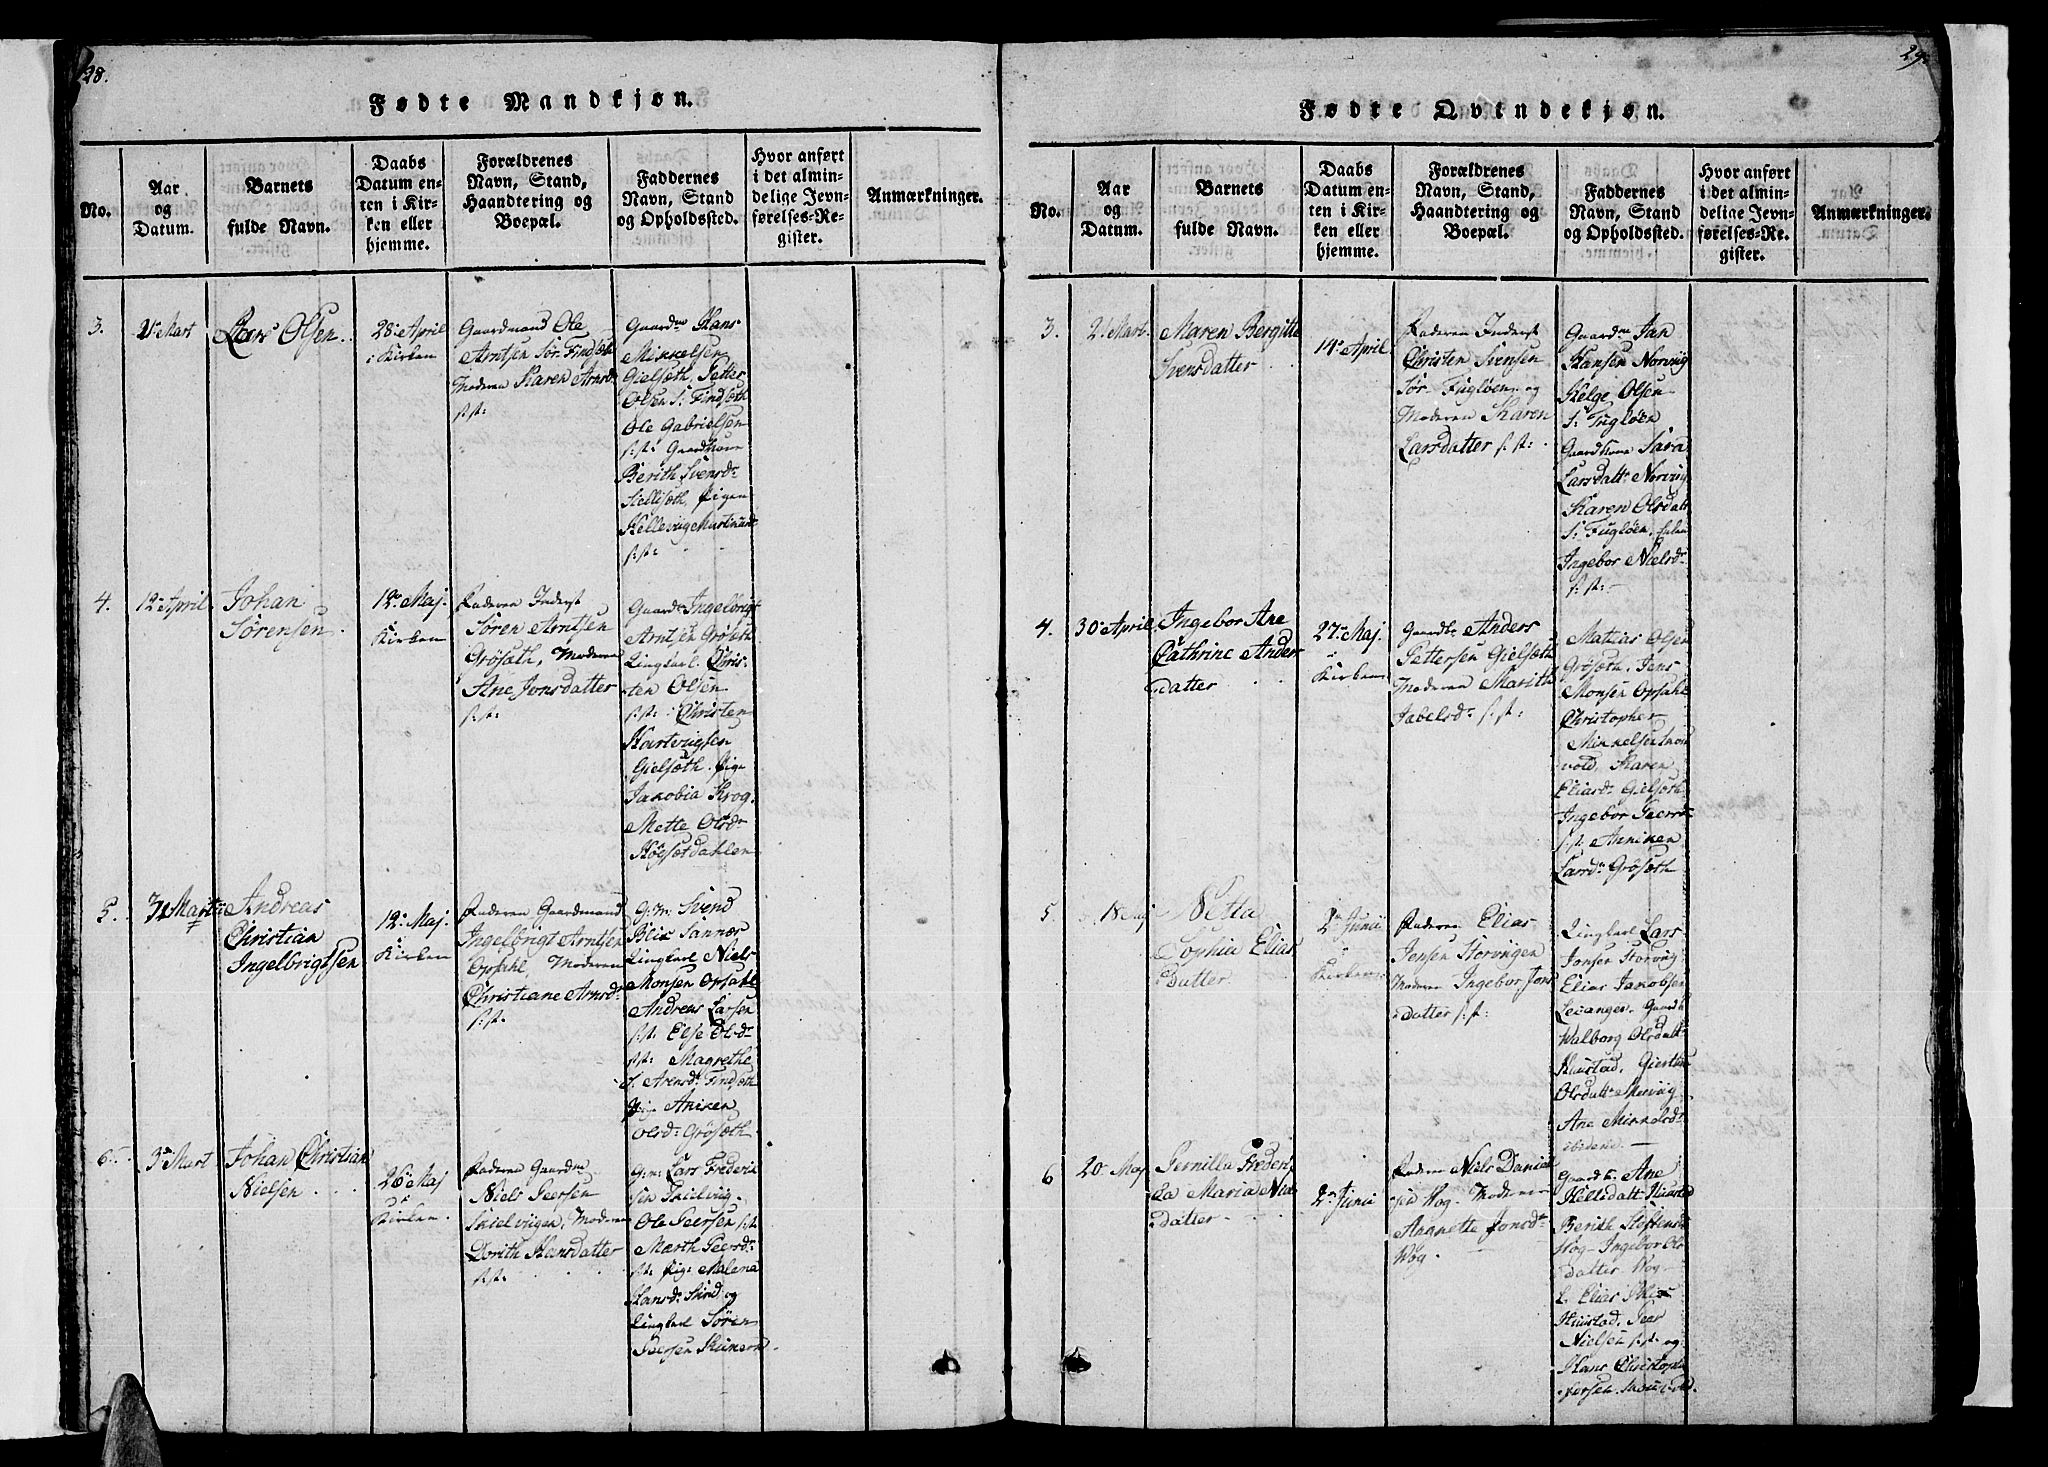 28.
Fødte Mandkjøn.
No.
Aar
og
Datum.
Barnets
fulde Navn.
Daabs
Datum en-
ten i Kir-
ken eller
hjemme.
Forældrenes
Navn, Stand,
Haandtering og
Boepæl.
Faddernes
Navn, Stand
og Opholdssted.
Hvor anført
i det almin-
delige Jevn-
førelses-Re-
gister.
Anmærkninger.
3.
Mart
Lars Olsen.
28. April
i Kirken
Gaardmand Ole
Arntsen Sør. Findsæth
Moderen Karen Arnsd.
s: st:
Gaardm. Hans
Mikkelsen
Gielsæth, Petter
Olsen S: Findsæth
Ole Gabrielsen
s: st: Gaardkone
Berith Svensdr
pigen
s: st:
4.
12. April
Johan
Sørensen.
12. Maj.
Kirken
Faderen Inderst
Søren Arntsen
Grøsæth, Moderen
Ane Jonsdatter
s: st:
Gaardm. Ingelbrigt
Arntsen Grøsæth
Ungkarl Chris-
ten Olsen
s: st: Christen
Hartvigsen
Gielsæth. pige
Jakobia Krog.
Mette Olsdr
Høgsetdahlen
5.
Andreas
Christian
Ingelbrigtsen
12. Maj.
Kirken
Faderen Gaardmand
Ingelbrigt Arntsen
Opsahl, Moderen
Christiane Arnsdr
s: st:
G: m: Svend
Blix Sannær
Ungkarl Niels
Monsen Opsahl
Andreas Larsen
s: st: Else Olsdr
s: st: Magrethe
Arensdr Findsæth
pige Aniken
Olsdr Grøsæth.
6.
3. Mart
Johan Christian
Nielsen
26. Maj
i
Kirken.
Faderen Gaardm.
Niels Peersen
Skielviigen, Moderen
Dorith Hansdatter
s: st:
G: m: Lars Frederik
sen Skielviig.
Ole Peersen s: st:
Marth Peersdr
s: st: pige Malena
Hansdr og
Ungkarl Søren
Peersen
29.
Fødte Qvindekjøn.
No.
Aar
og
Datum.
Barnets
fulde Navn.
Daabs
Datum en-
ten i Kir-
ken eller
hjemme.
Forældrenes
Navn, Stand,
Haandtering og
Boepæl.
Faddernes
Navn, Stand
og Opholdssted.
Hvor anført
i det almin-
delige Jevn-
førelses-Re-
gister.
Anmærkninger.
3.
2. Mart.
Maren Bergitte
Svensdatter
14. April
Faderen Inderst
Christen Svensen
Sør. Fugløen og
Moderen Karen
Larsdatter s: st:
Gaardm. Jan
Hansen Norvig
Helge Olsen
S: Fugløen
Gaardkone Sara
Larsdatt. Norvig
Karen Olsdatt
S: Fugløen,
Ingebor Nielsdr
s: st:
4.
30. April.
Ingebor Ane
Cathrine Anders
datter
27. Maj
i
Kirken
Gaardbr. Anders
Pettersen Gielsæth
Moderen Marith
Jabelsdr s: st:
Matias Olsen
Grøsæth. Jens
Monsen Opsahl
Christopher
Mikkelsen
vold, Karen
Eliasdr Gielsæth
Ingebor
s: st. Anniken
Larsdr Grøsæth
5.
18 Maj
Netta
Sophia Elias
datter
2. Junii
i
Kirken
Faderen Elias
Jensen Storvigen
Moderen Ingebor Jons
datter s: st:
Ungkarl Lars
Jonsen Storvig
Elias Jakobsen
Leianger. Gaardk.
Walborg Olsdatt.
Hustad,
Olsdatt.
Ane Mikkelsdr
6
20. Maj
Pernilla Frederi-
ka Maria Niels
datter.
2. Junii
Faderen Niels Daniel
sen Wog. Moderen
Jonsdr
Wog.
Gaardk. Ane
Hustad
Berith
Wog. Ingebor Ols
datter Wog.
Elias
Hustad. Peer
Nielsen s: st: og
Hans Christoph